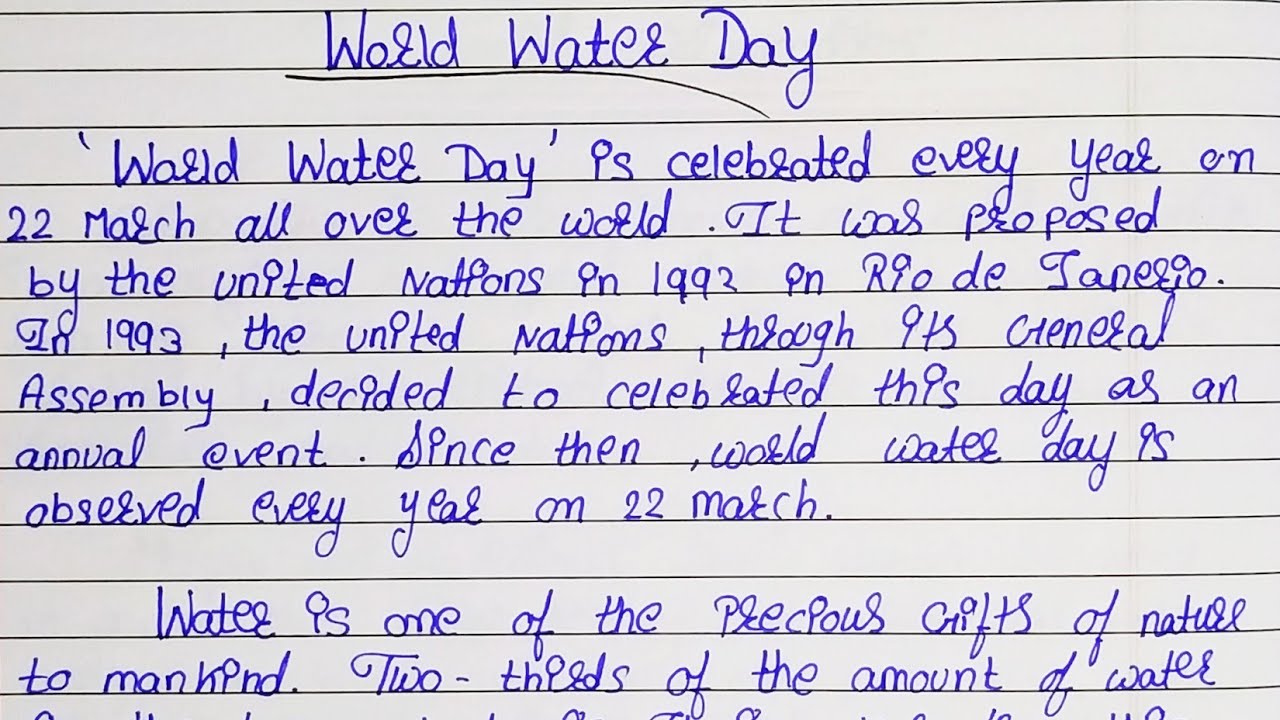 World Water Day
'World Water Day' is celebrated every year on
22 March all over the world. It was proposed
by the united Nations in 1992 in Rio de Janerio.
In 1993, the united Nations, through its General
Assembly, decided to celebrated this day as an
annual event. Since then, world water day is
observed every year on 22 march.
Water is one of the Precious Gifts of nature
to mankind. Two-thirds of the amount of water